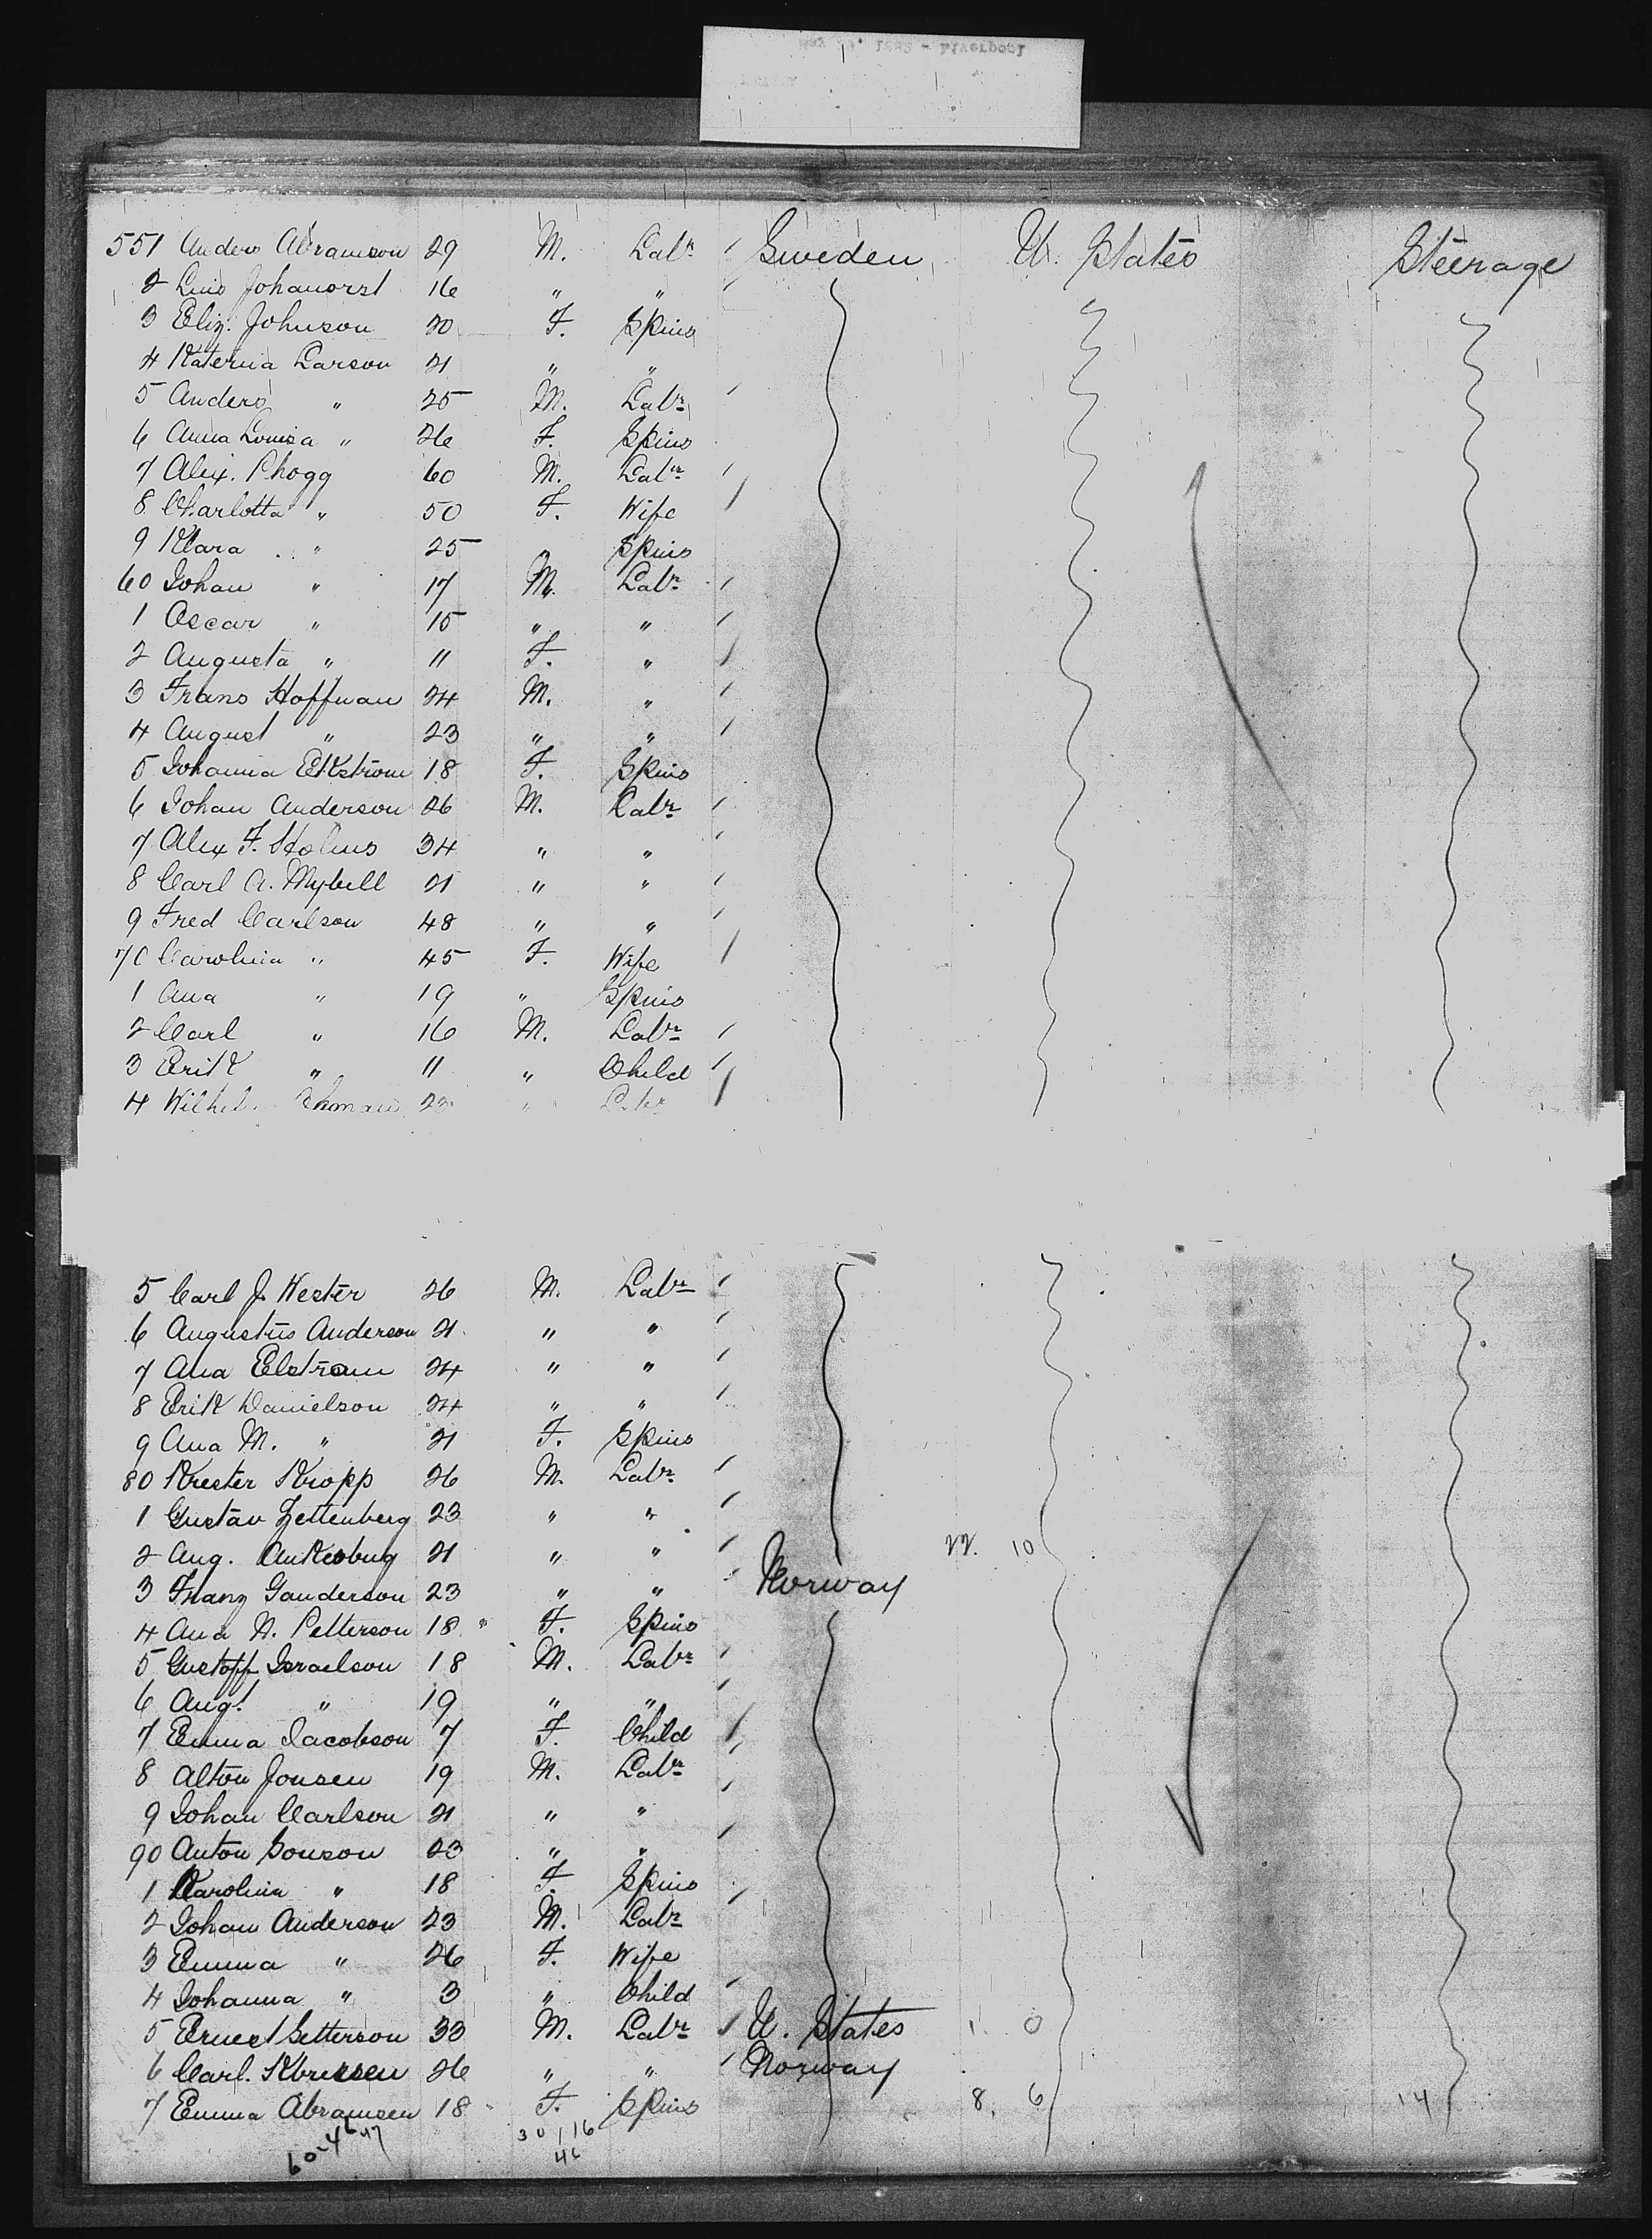 551 Anders Abramson 29 M. Labr Sweden U. States Steerage
2 Johanorst 16 " "
3 Eliz. Johnson 20 F. Spins
4 Katerina Larson 21 " "
5 Anders " 25 M. Labr
6 Anna Louisa " 26 F. Spins
7 Alex. Phogg 60 M. Labr
8 Charlotta " 50 F. Wife
9 Klara " 25 " Spins
60 Johan " 17 M. Labr
1 Oscar " 15 " "
2 Augusta " 11 F. "
3 Frans Hoffman 24 M. "
4 August " 23 " "
5 Johanna Ekström 18 F. Spins
6 Johan Anderson 26 M. Labr
7 Alex F. Holms 34 " "
8 Carl A. Mybell 21 " "
9 Fred Carlson 48 " "
70 Carolina " 45 F. Wife
1 Ana " 19 " Spins
2 Carl " 16 M. Labr
3 Erik " 11 " Child
4 Wilhel. " Labr
5 Carl J. Wester 26 M. Labr
6 Augustus Anderson 21 " "
7 Ana Elstrom 24 " "
8 Erik Danielson 24 " "
9 Ana M. " 21 F. Spins
80 Krester Kropp 26 M. Labr
1 Gustav Zettenberg 23 " "
2 Aug. 21 " " 22. 10
3 Franz Ganderson 23 " " Norway
4 Ana N. Petterson 18 " F. Spins
5 Gustoff Israelson 18 M. Labr
6 Augt " 19 " "
7 Emma Jacobson 7 F. Child
8 Alton Jonsen 19 M. Labr
9 Johan Carlson 21 " "
90 Anton Sonson 23 " "
1 Karolina " 18 F. Spins
2 Johan Anderson 23 M. Labr
3 Emma " 26 F. Wife
4 Johanna " 3 " Child
5 Ernest Setterson 33 M. Labr U. States 1. 0
6 Carl. 26 " " Norway
7 Emma Abramsen 18 F. Spins 8. 6 14
30 / 16
46